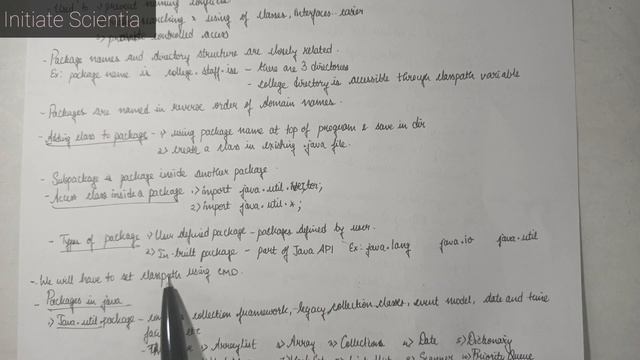 Initiate Scientia
Used to 1) prevent naming conflicts
searching & using of classes, interfaces easier
3) provide controlled access
- Package names and directory structure are closely related.
Ex: package name is college.staff.ise - there are 3 directories
- college directory is accessible through classpath variable
- Packages are named in reverse order of domain names.
- Adding class to package - 1) using package name at top of program & save in dir
2) create a class in existing .java file.
- Subpackage is package inside another package.
- Access class inside a package 1) import java.util.Vector;
2) import java.util.*;
- Types of package 1) User defined package - packages defined by user.
2) In-built package - part of Java API Ex: java.lang java.io java.util
- We will have to set classpath using CMD.
- Packages in java
1) Java.util.package - collection framework, legacy collection classes, event model, date and time
etc
ArrayList Array Collections Date 5) Dictionary
Scanner Priority Queue